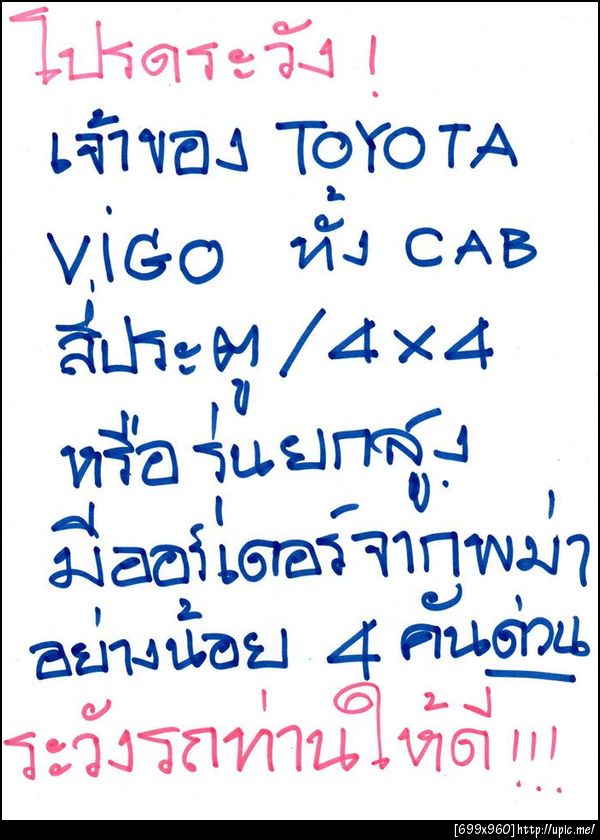 โปรดระวัง!
เจ้าของ TOYOTA
ViGO ทั้ง CAB
สี่ประตู / 4x4
หรือ รุ่นยกสูง
มีออร์เดอร์จากพม่า
อย่างน้อย 4 คันด่วน
ระวังรถท่านให้ดี!!!
[699x960]http://upic.me/